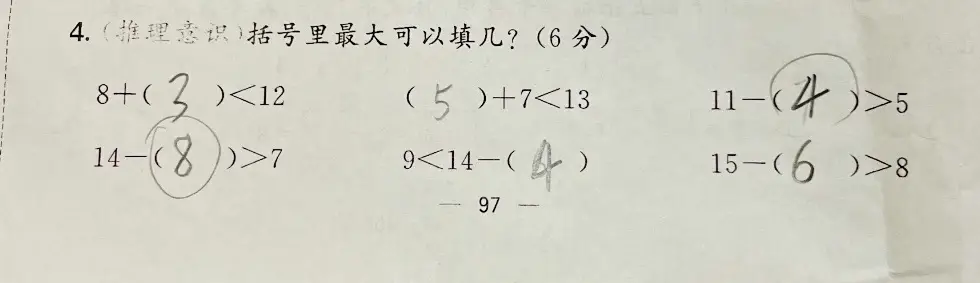 4.(推理意识)括号里最大可以填几?(6分)
8+( 3 )<12 ( 5 )+7<13 11-( 4 )>5
14-( 8 )>7 9<14-( 4 ) 15-( 6 )>8
— 97 —